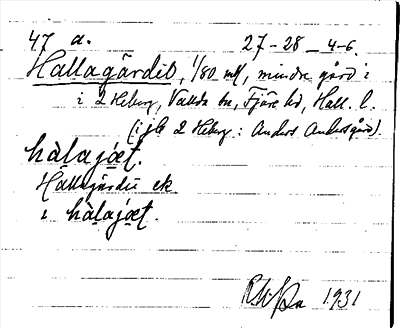 47 a. 27-28 4-6.
Hallagärdet, 1/80 mtl, mindre gård i
i 2 Heberg, Vallda sn, Fjäre hd, Hall. l.
(i jb 2 Heberg: Anders Andersgård).
hàlajæt.
Hallagärdet ek
i hàlajæt.
1931